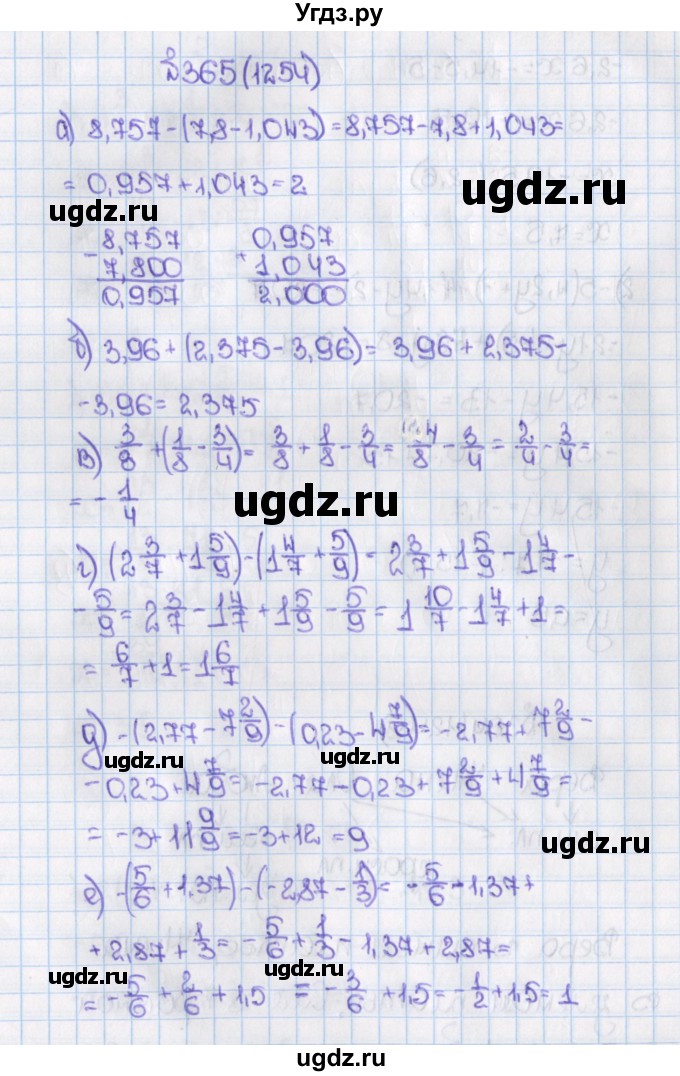 Угдз.ру
№365(1254)
а) 8,757-(7,8-1,043)=8,757-7,8+1,043=
=0,957+1,043=2
ugdz.ru ugdz.ru
- 8,757
7,800
0,957
+ 0,957
1,043
2,000
б) 3,96+(2,375-3,96)=3,96+2,375-
-3,96=2,375
в) 3/8+(1/8-3/4)=3/8+1/8-3/4=4/8-3/4=2/4-3/4=
=-1/4
ugdz.ru ugdz.ru
г) (2 3/7+1 5/9)-(1 4/7+5/9)=2 3/7+1 5/9-1 4/7-
-5/9=2 3/7-1 4/7+1 5/9-5/9=1 10/7-1 4/7+1=
=6/7+1=1 6/7
ugdz.ru
д) -(2,77-7 2/9)-(0,23-4 7/9)=-2,77+7 2/9-
-0,23+4 7/9=-2,77-0,23+7 2/9+4 7/9=
=-3+11 9/9=-3+12=9
ugdz.ru ugdz.ru
е) -(5/6+1,37)-(-2,87-1/3)=-5/6-1,37+
+2,87+1/3=-5/6+1/3-1,37+2,87=
=-5/6+2/6+1,5=-3/6+1,5=-1/2+1,5=1
ugdz.ru ugdz.ru
ugdz.ru